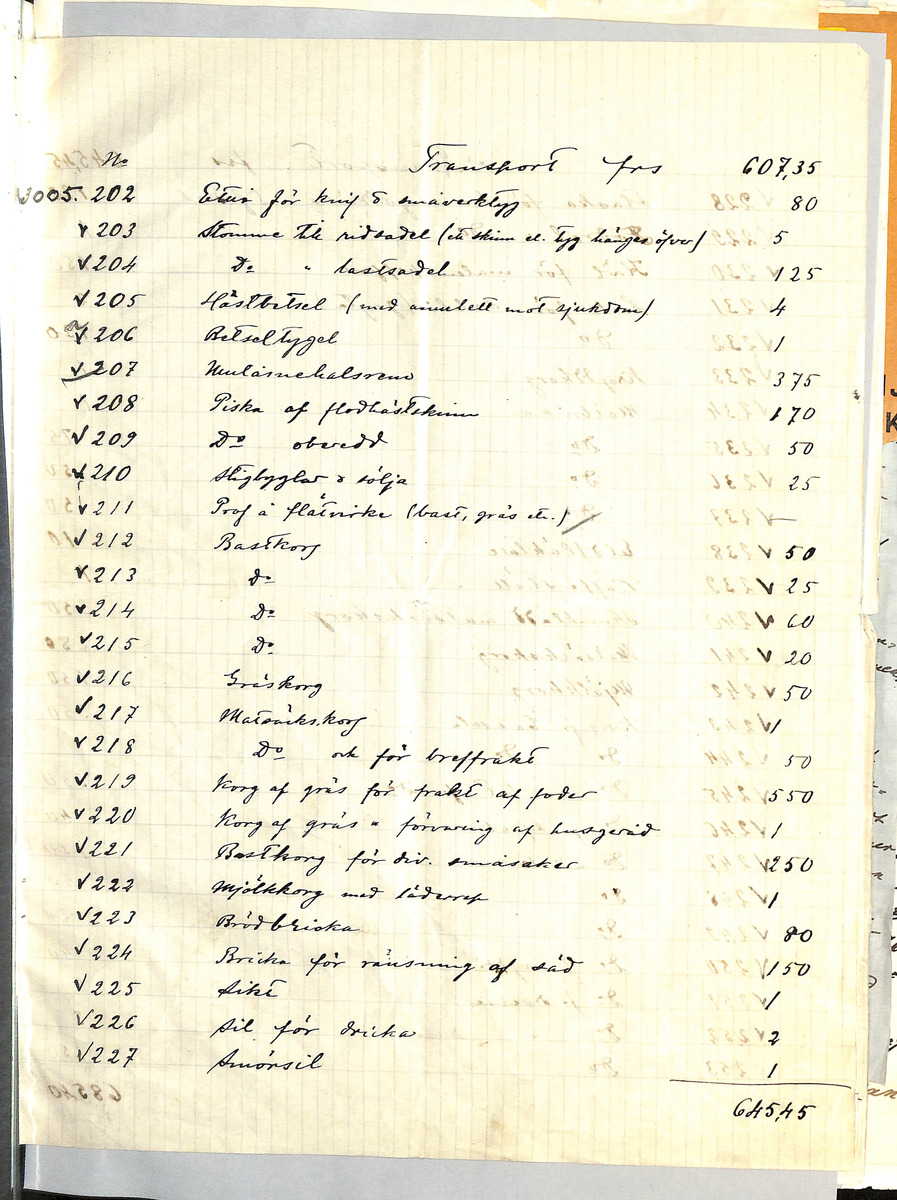 No Transport frs 607,35
1005. 202 Etui för knif & småverktyg 80
√ 203 Stomme till ridsadel (ett skinn el. tyg hänges öfver) 5
√ 204 Do " lastsadel 125
√ 205 Hästbetsel (med amulett mot sjukdom) 4
√ 206 Betseltygel 1
√ 207 Mulåsnehalsrem 375
√ 208 Piska af flodhästskinn 170
√ 209 Do oberedd 50
√ 210 Stigbyglar & sölja 25
√ 211 Prof å flätvirke (bast, gräs etc.) —
√ 212 Bastkorg √ 50
√ 213 Do √ 25
√ 214 Do √ 60
√ 215 Do √ 20
√ 216 Gräskorg √ 50
√ 217 Matsäckskorg √ 1
√ 218 Do och för breffrakt 50
√ 219 Korg af gräs för frakt af foder 550
√ 220 Korg af gräs " förvaring af husgeråd √ 1
√ 221 Bastkorg för div. småsaker √ 250
√ 222 Mjölkkorg med läderrep √ 1
√ 223 Brödbricka 80
√ 224 Bricka för rensning af säd 150
√ 225 Sikt 1
√ 226 Sil för dricka 2
√ 227 Smörsil 1
645,45